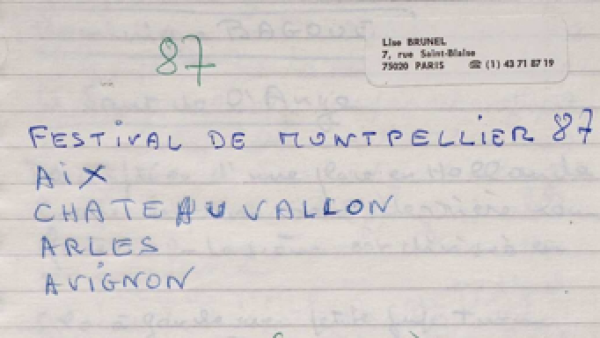 87
Lise BRUNEL
7, rue Saint-Blaise
75020 PARIS ☎ (1) 43 71 87 19
FESTIVAL DE MONTPELLIER 87
AIX
CHATEAUVALLON
ARLES
AVIGNON